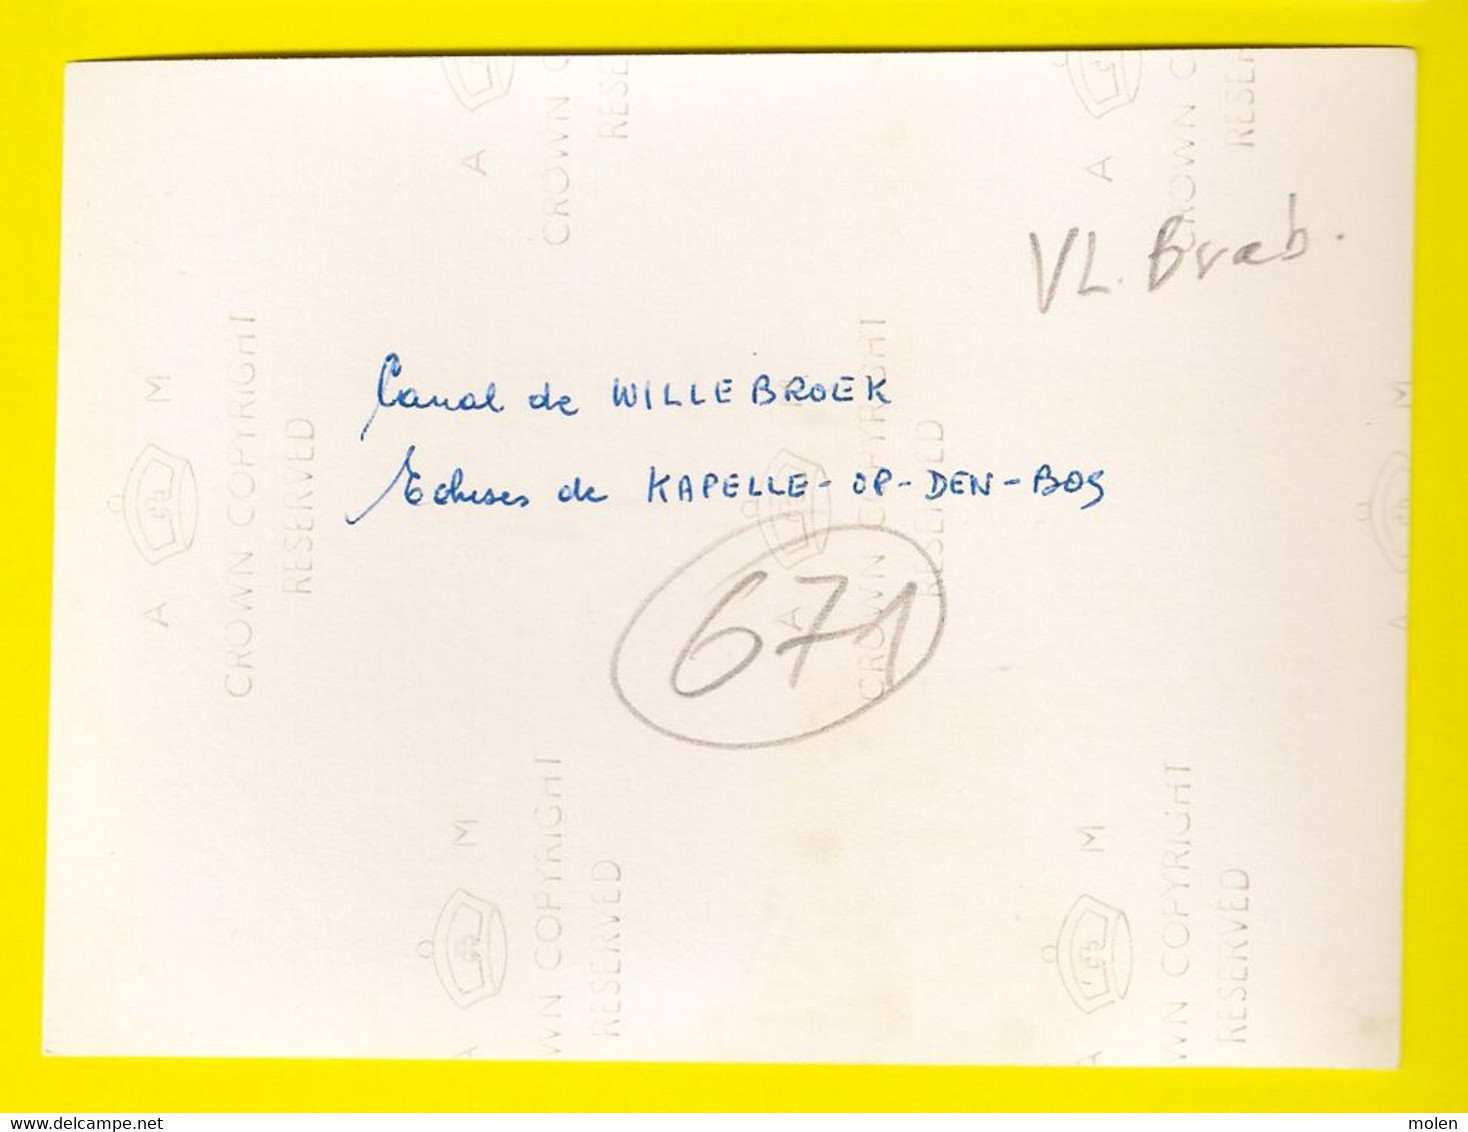 VL. Brab.
Canal de WILLEBROEK
Ecluses de KAPELLE-OP-DEN-BOS
671
A M
CROWN COPYRIGHT
RESERVED
A
CROWN C
RESE
A
CROWN C
RESER
A M
CROWN COPYRIGHT
RESERVED
M
WN COPYRIGHT
RESERVED
A
M
WN COPYRIGHT
RESERVED
A
M
A
delcampe.net
molen